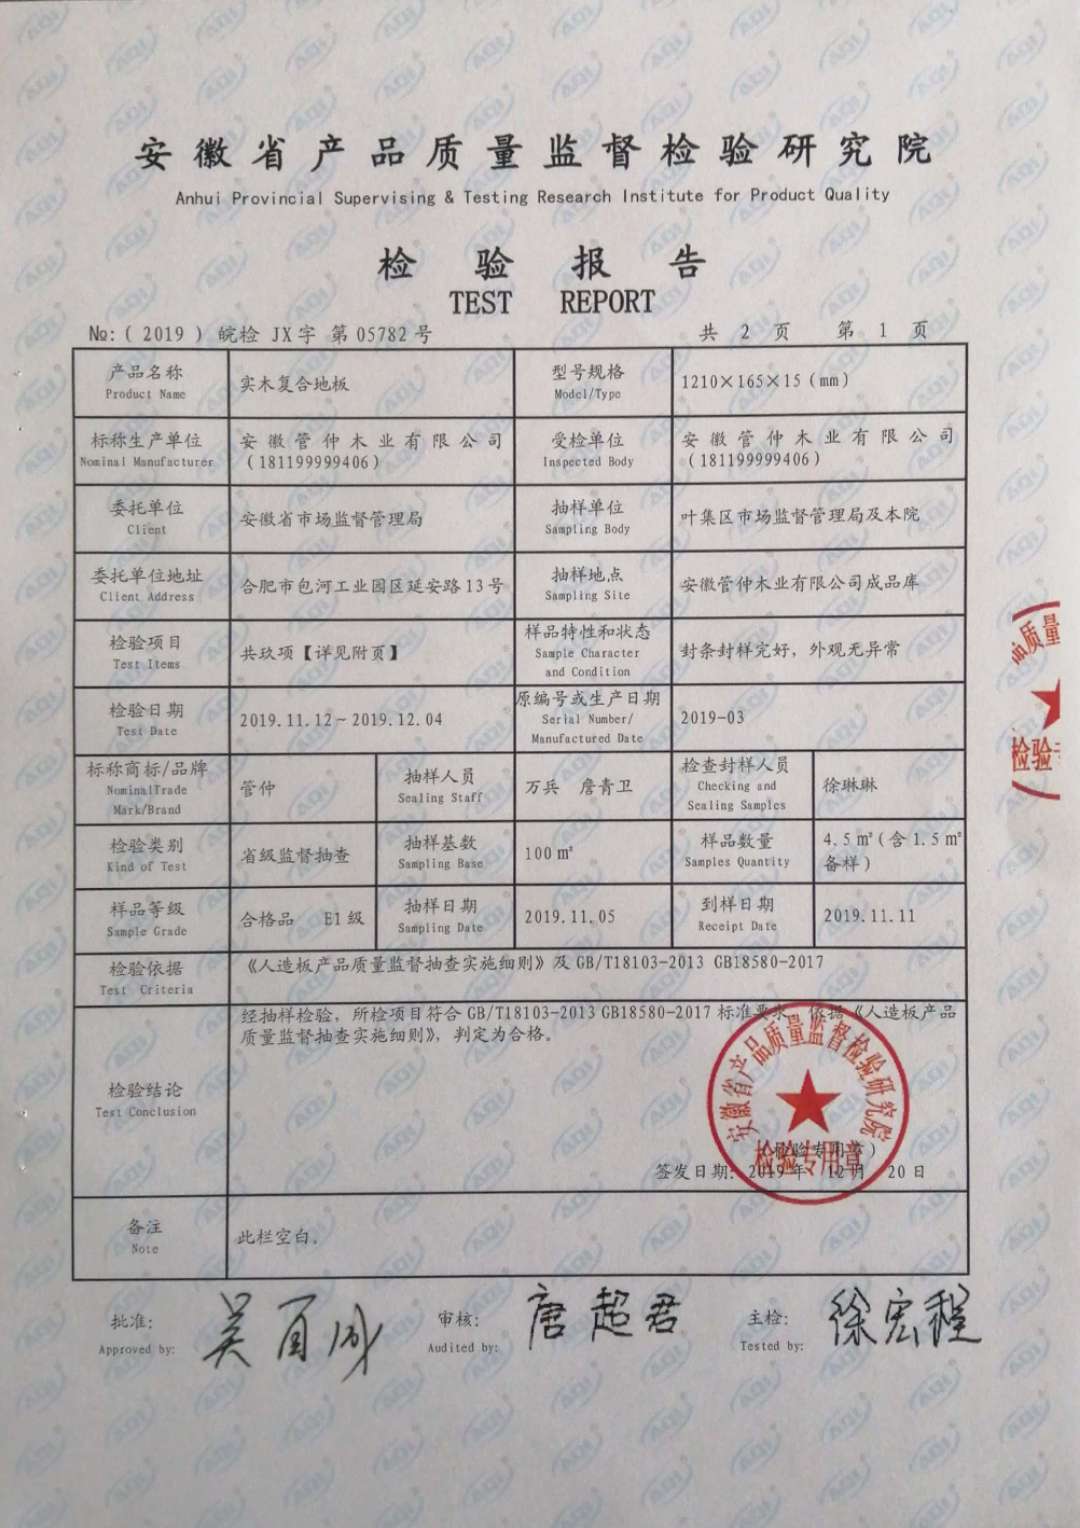 安徽省产品质量监督检验研究院
Anhui Provincial Supervising & Testing Research Institute for Product Quality
检验报告
TEST REPORT
№:(2019) 皖检 JX字 第05782号 共 2 页 第 1 页
产品名称 Product Name
实木复合地板
型号规格 Model/Type
1210×165×15(mm)
标称生产单位 Nominal Manufacturer
安徽管仲木业有限公司
(181199999406)
受检单位 Inspected Body
安徽管仲木业有限公司
(181199999406)
委托单位 Client
安徽省市场监督管理局
抽样单位 Sampling Body
叶集区市场监督管理局及本院
委托单位地址 Client Address
合肥市包河工业园区延安路13号
抽样地点 Sampling Site
安徽管仲木业有限公司成品库
检验项目 Test Items
共玖项【详见附页】
样品特性和状态
Sample Character
and Condition
封条封样完好，外观无异常
检验日期 Test Date
2019.11.12~2019.12.04
原编号或生产日期
Serial Number/
Manufactured Date
2019-03
标称商标/品牌
NominalTrade
Mark/Brand
管仲
抽样人员 Sealing Staff
万兵 詹青卫
检查封样人员
Checking and
Sealing Samples
徐琳琳
检验类别 Kind of Test
省级监督抽查
抽样基数 Sampling Base
100㎡
样品数量 Samples Quantity
4.5㎡(含1.5㎡
备样)
样品等级 Sample Grade
合格品 E1级
抽样日期 Sampling Date
2019.11.05
到样日期 Receipt Date
2019.11.11
检验依据 Test Criteria
《人造板产品质量监督抽查实施细则》及GB/T18103-2013 GB18580-2017
检验结论 Test Conclusion
经抽样检验，所检项目符合GB/T18103-2013 GB18580-2017标准要求，依据《人造板产品
质量监督抽查实施细则》，判定为合格。
安徽省产品质量监督检验研究院
检验专用章
(检验专用章)
签发日期: 2019年 12月 20日
备注 Note
此栏空白。
批准:
Approved by:
审核:
Audited by:
唐超君
主检:
Tested by:
徐宏程
品质量
检验专
AQI